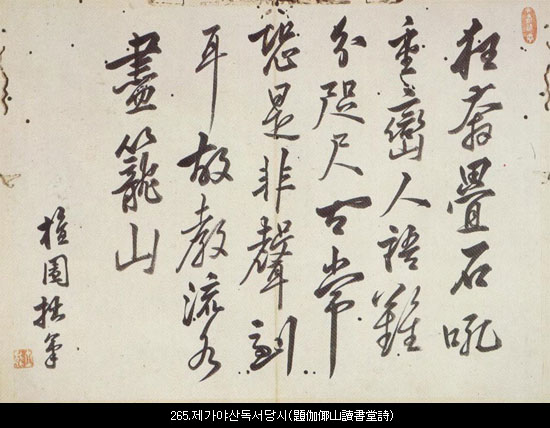 狂奔疊石吼
重巒人語難
分咫尺間常
恐是非聲到
耳故教流水
盡籠山
檀園拙筆
265.제가야산독서당시(題伽倻山讀書堂詩)